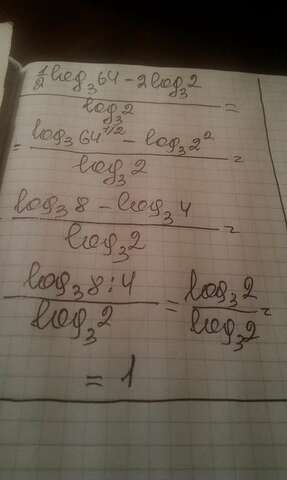 1/2 log₃64 - 2log₃2
log₃2 =
= log₃64^1/2 - log₃2²
log₃2 =
log₃8 - log₃4
log₃2 =
log₃8:4 = log₃2 =
log₃2 log₃2
= 1